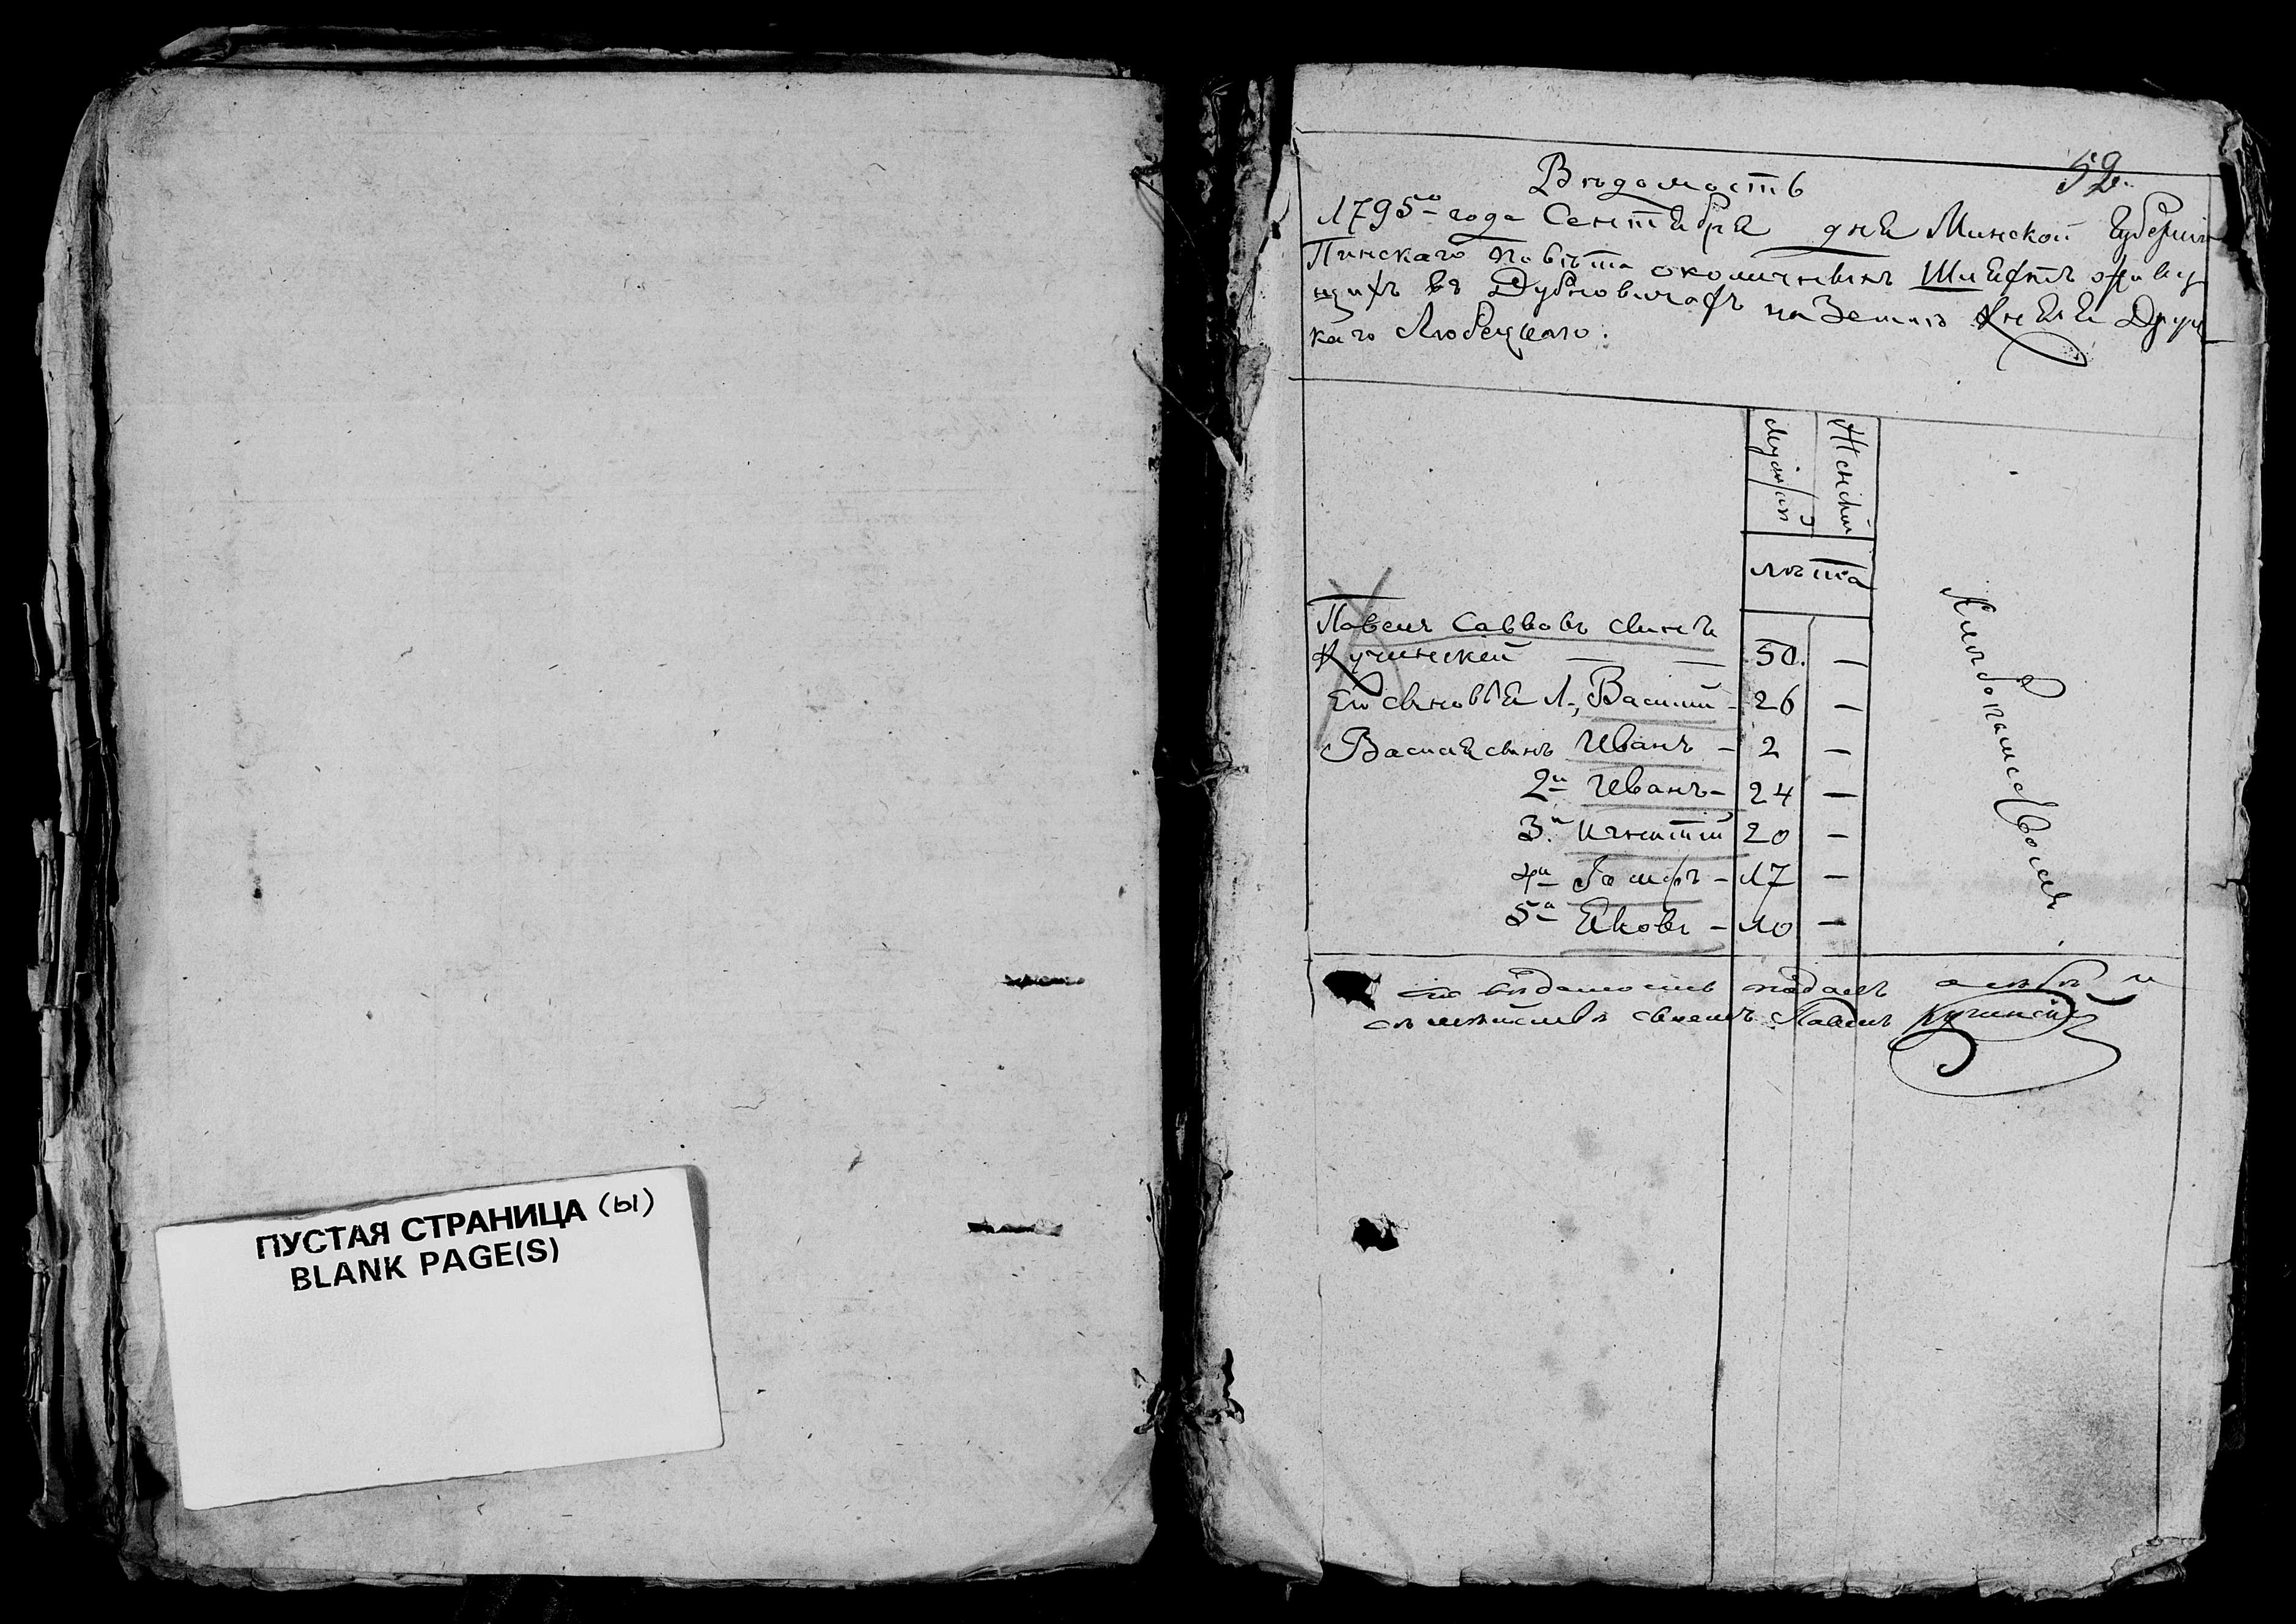 ПУСТАЯ СТРАНИЦА (ы)
BLANK PAGE(S)
52
Вѣдомость
1795го года Сентября дня Минской Губерніи
Пинскаго Повѣта околичнихъ Шляхтѣ живу
щихъ въ Дубновичахъ на Землѣ Князя Друц
каго Любецкаго.
Мужскій
Женскій
лѣта
Павелъ Саввовъ синъ
Кучинскей — — 50. —
Его синовья 1, Василій - 26 —
Василя синъ Иванъ - 2 —
2й Иванъ - 24 —
3й Игнатій 20 —
4й Іосифъ - 17 —
5й Яковъ - 10 —
вѣдомость подалъ о себѣ и
о семѣйствѣ своемъ Павелъ Кучинскій